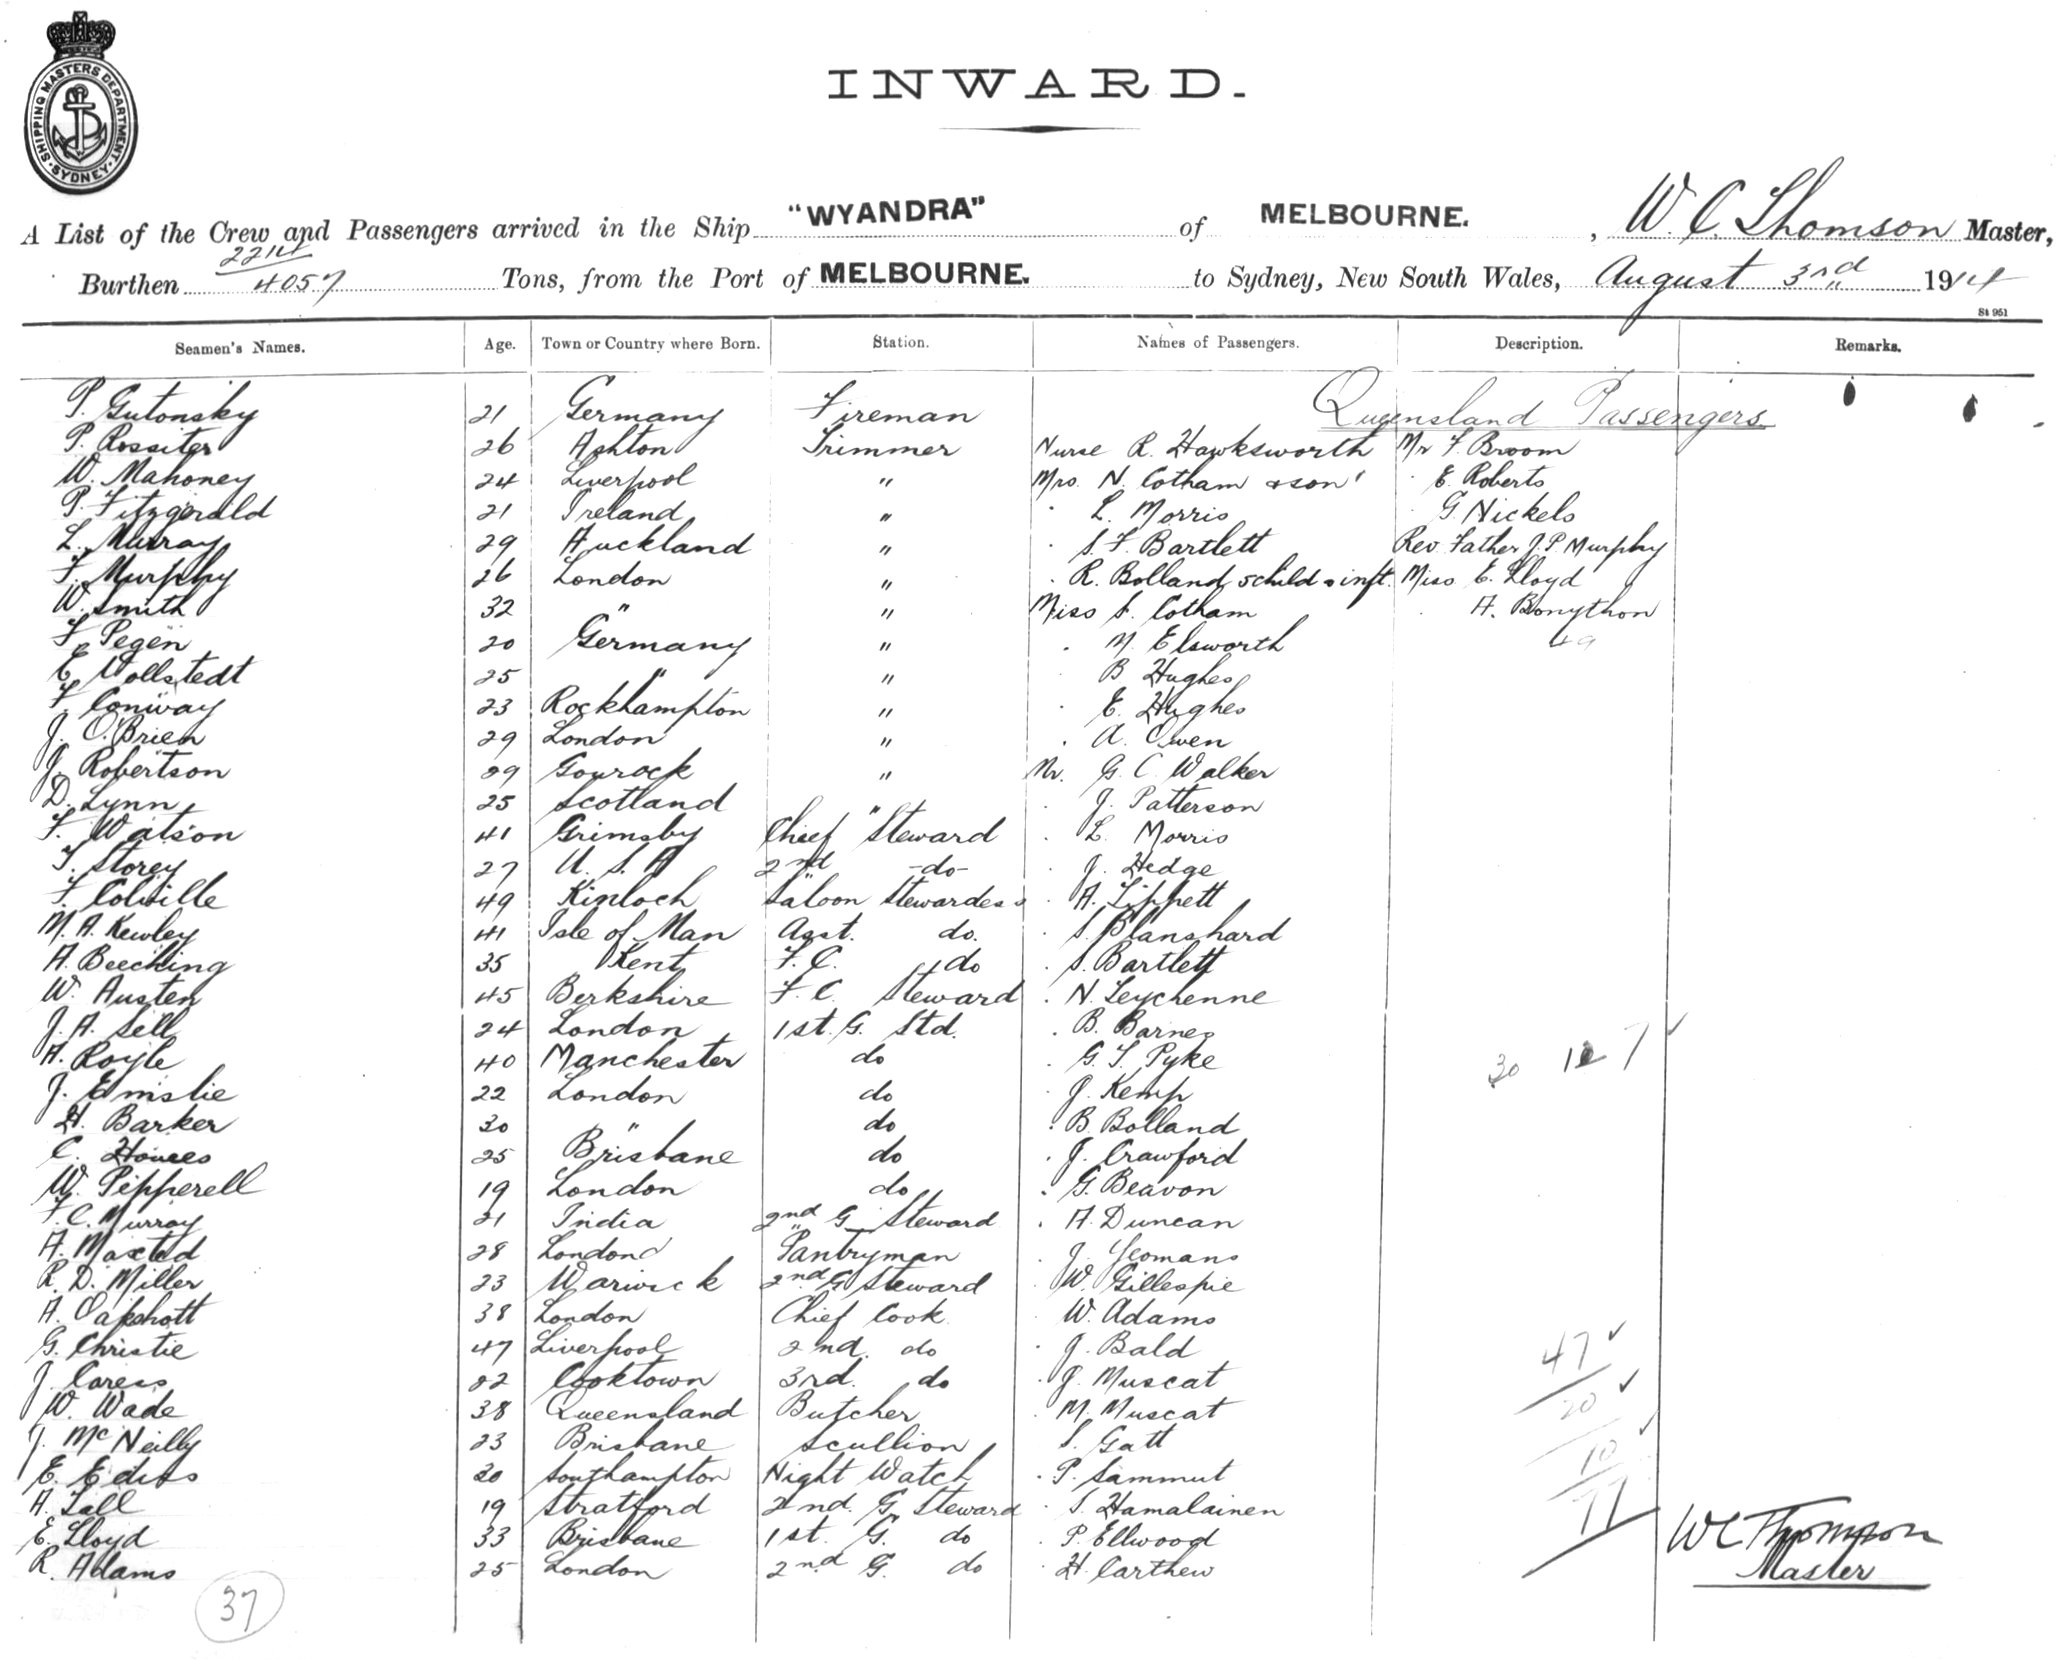 SHIPPING MASTERS DEPARTMENT. SYDNEY
INWARD.
A List of the Crew and Passengers arrived in the Ship "WYANDRA" of MELBOURNE. , W. C. Thomson Master,
Burthen 2214 4057 Tons, from the Port of MELBOURNE. to Sydney, New South Wales, August 3rd 1914
St 951
Seamen's Names. Age. Town or Country where Born. Station. Names of Passengers. Description. Remarks.
Queensland Passengers
P. Gutonsky 21 Germany Fireman
P. Rossiter 26 Ashton Trimmer Nurse R. Hawksworth Mr F. Broom
W. Mahoney 24 Liverpool " Mrs. N. Cotham & son " E. Roberts
P. Fitzgerald 21 Ireland " " L. Morris " G. Nickels
L. Murray 29 Auckland " " S. F. Bartlett Rev. Father J. P. Murphy
F. Murphy 26 London " " R. Bolland, 5 child & inft. Miss E. Lloyd
W. Smith 32 " " Miss S. Cotham " A. Bonython
F. Pegen 20 Germany " " M. Elsworth 49
E. Wollstedt 25 " " " B Hughes
F. Conway 23 Rockhampton " " E. Hughes
J. O'Brien 29 London " " A. Owen
J. Robertson 29 Gourock " Mr. G. C. Walker
D. Lynn 25 Scotland " " J. Patterson
F. Watson 41 Grimsby Chief Steward " L. Morris
T. Storey 27 U. S. A 2nd -do- " J. Hedge
F. Colville 49 Kinloch Saloon Stewardess " A. Tippett
M. A. Kewley 41 Isle of Man Asst. do. " S. Blanshard
A. Beeching 35 Kent F. C. do " S. Bartlett
W. Austen 45 Berkshire F. C. Steward " N. Leychenne
J. A. Sell 24 London 1st. G. Std. " B. Barnes
A. Royle 40 Manchester do " G. T. Pyke 30 12 7
J. Emslie 22 London do " J. Kemp
H. Barker 30 " do " B. Bolland
C. 25 Brisbane do " J. Crawford
W. Pepperell 19 London do " G. Beavon
F. C. Murray 21 India 2nd G Steward " A. Duncan
A. Maxted 28 London Pantryman " J. Yeomans
R. D. Miller 23 Warwick 2nd G Steward " W. Gillespie
A. Oakshott 38 London Chief Cook " W. Adams
G. Christie 47 Liverpool 2nd. do " J. Bald 47
J. Caress 22 Cooktown 3rd. do " J. Muscat
W. Wade 38 Queensland Butcher " M. Muscat 20
J. McNeilly 23 Brisbane Scullion " S. Gatt
E. Ediss 20 Southampton Night Watch " P. Sammut 10
A. Tall 19 Stratford 2nd. G. Steward " S. Hamalainen 77
E. Lloyd 33 Brisbane 1st. G. do " P. Ellwood W C Thomson
R. Adams 25 London 2nd G. do " H. Carthew Master
37